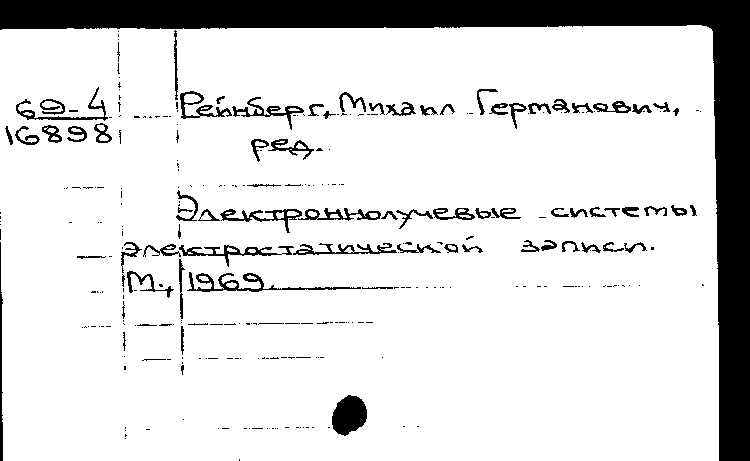 69-4
16898
Рейнберг, Михаил Германович,
ред.
Электроннолучевые системы
электростатической записи.
М., 1969.